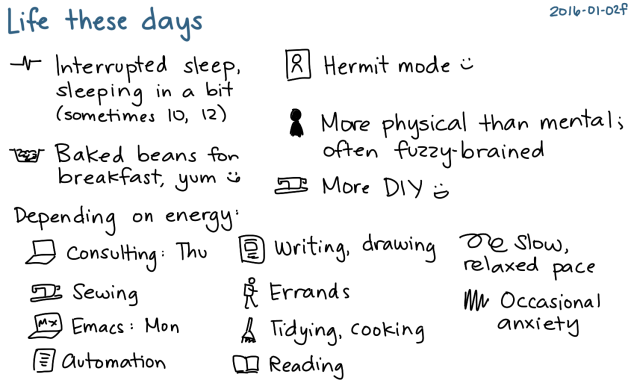 Life these days
2016-01-02f
Interrupted sleep,
sleeping in a bit
(sometimes 10, 12)
Baked beans for
breakfast, yum
Hermit mode
More physical than mental;
often fuzzy-brained
More DIY
Depending on energy:
Consulting: Thu
Sewing
Mx
Emacs: Mon
Automation
Writing, drawing
Errands
Tidying, cooking
Reading
Slow,
relaxed pace
Occasional
anxiety